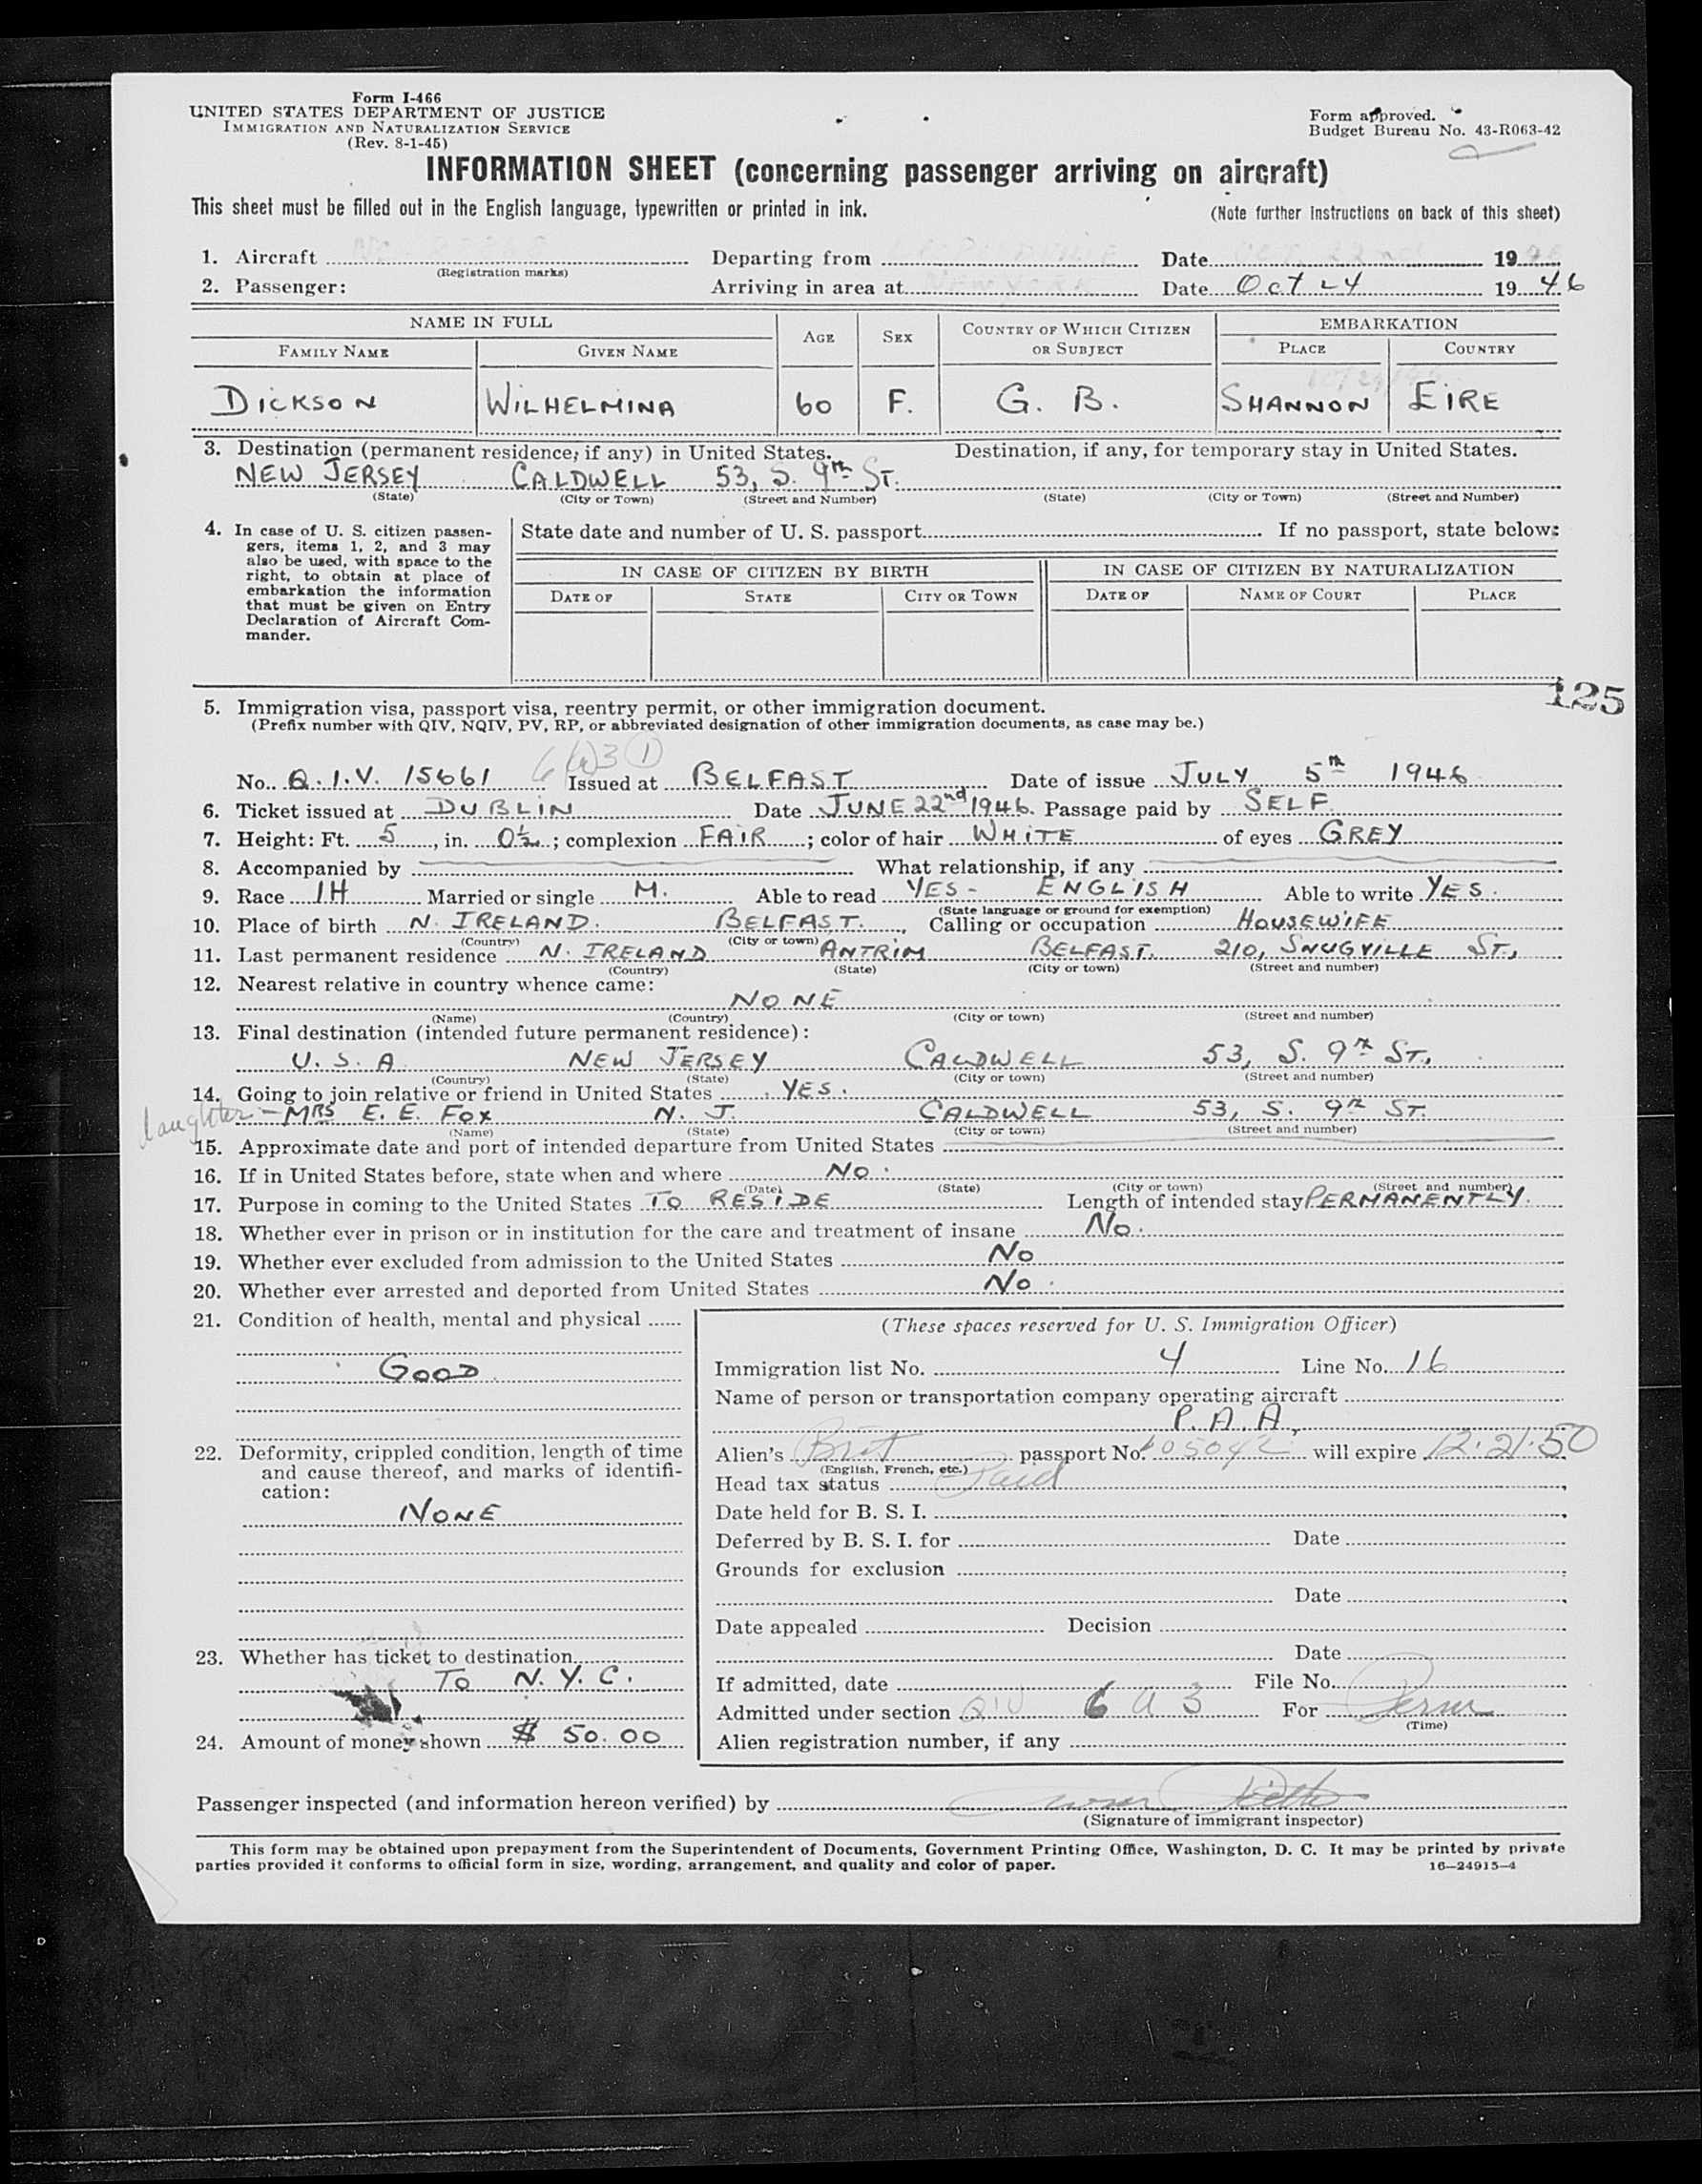 Form I-466
UNITED STATES DEPARTMENT OF JUSTICE
IMMIGRATION AND NATURALIZATION SERVICE
(Rev. 8-1-45)
Form approved.
Budget Bureau No. 43-R063-42
INFORMATION SHEET (concerning passenger arriving on aircraft)
This sheet must be filled out in the English language, typewritten or printed in ink. (Note further instructions on back of this sheet)
1. Aircraft Departing from Date 19
(Registration marks)
2. Passenger: Arriving in area at NEW YORK Date Oct 24 1946
NAME IN FULL AGE SEX COUNTRY OF WHICH CITIZEN OR SUBJECT EMBARKATION
FAMILY NAME GIVEN NAME PLACE COUNTRY
DICKSON WILHELMINA 60 F. G. B. SHANNON EIRE
3. Destination (permanent residence, if any) in United States. Destination, if any, for temporary stay in United States.
NEW JERSEY CALDWELL 53, S. 9th ST.
(State) (City or Town) (Street and Number) (State) (City or Town) (Street and Number)
4. In case of U. S. citizen passengers, items 1, 2, and 3 may also be used, with space to the right, to obtain at place of embarkation the information that must be given on Entry Declaration of Aircraft Commander.
State date and number of U. S. passport If no passport, state below:
IN CASE OF CITIZEN BY BIRTH IN CASE OF CITIZEN BY NATURALIZATION
DATE OF STATE CITY OR TOWN DATE OF NAME OF COURT PLACE
125
5. Immigration visa, passport visa, reentry permit, or other immigration document.
(Prefix number with QIV, NQIV, PV, RP, or abbreviated designation of other immigration documents, as case may be.)
No. Q.I.V. 15661 Issued at BELFAST Date of issue JULY 5th 1946
6. Ticket issued at DUBLIN Date JUNE 22nd 1946. Passage paid by SELF
7. Height: Ft. 5, in. 0½; complexion FAIR; color of hair WHITE of eyes GREY
8. Accompanied by What relationship, if any
9. Race IH Married or single M. Able to read YES - ENGLISH Able to write YES.
(State language or ground for exemption)
10. Place of birth N. IRELAND. BELFAST. Calling or occupation HOUSEWIFE
(Country) (City or town)
11. Last permanent residence N. IRELAND ANTRIM BELFAST. 210, SNUGVILLE ST.,
(Country) (State) (City or town) (Street and number)
12. Nearest relative in country whence came:
NONE
(Name) (Country) (City or town) (Street and number)
13. Final destination (intended future permanent residence):
U. S. A. NEW JERSEY CALDWELL 53, S. 9th ST.,
(Country) (State) (City or town) (Street and number)
14. Going to join relative or friend in United States YES.
daughter - MRS E. E. FOX N. J. CALDWELL 53, S. 9th ST.
(Name) (State) (City or town) (Street and number)
15. Approximate date and port of intended departure from United States
16. If in United States before, state when and where NO.
(Date) (State) (City or town) (Street and number)
17. Purpose in coming to the United States TO RESIDE Length of intended stay PERMANENTLY.
18. Whether ever in prison or in institution for the care and treatment of insane No.
19. Whether ever excluded from admission to the United States No
20. Whether ever arrested and deported from United States No.
21. Condition of health, mental and physical
GOOD
22. Deformity, crippled condition, length of time and cause thereof, and marks of identification:
NONE
23. Whether has ticket to destination
To N. Y. C.
24. Amount of money shown $ 50.00
(These spaces reserved for U. S. Immigration Officer)
Immigration list No. 4 Line No. 16
Name of person or transportation company operating aircraft
P. A. A.
Alien's Brit passport No. 605042 will expire 12.21.50
(English, French, etc.)
Head tax status Paid
Date held for B. S. I.
Deferred by B. S. I. for Date
Grounds for exclusion
Date
Date appealed Decision
Date
If admitted, date File No.
Admitted under section QIV 6 a 3 For Perm
(Time)
Alien registration number, if any
Passenger inspected (and information hereon verified) by
(Signature of immigrant inspector)
This form may be obtained upon prepayment from the Superintendent of Documents, Government Printing Office, Washington, D. C. It may be printed by private
parties provided it conforms to official form in size, wording, arrangement, and quality and color of paper. 16—24915-4